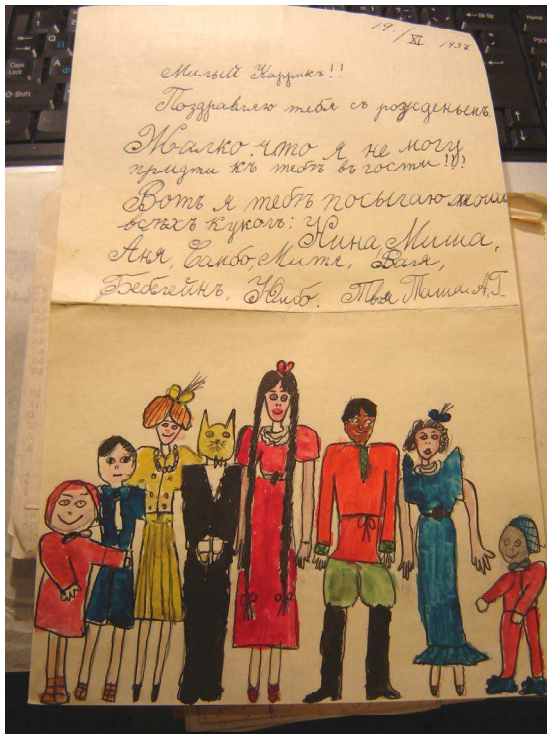 19/XI 1937
Милый Каррикъ!!
Поздравляю тебя съ рожденьемъ.
Жалко что я не могу
придти къ тебѣ въ гости!!!
Вотъ я тебѣ посылаю моихъ
всѣхъ куколъ: Нина, Миша,
Аня, Самбо, Митя, Валя,
Бебегейнъ, Юмбо. Твоя Таша. А.Г.